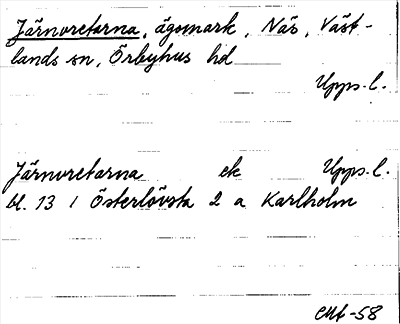 Järnvretarna, ägomark, Näs, Väst-
lands sn, Örbyhus hd
Upps. l.
Järnvretarna ek Upps. l.
bl. 13 1 Österlövsta 2 a Karlholm
-58